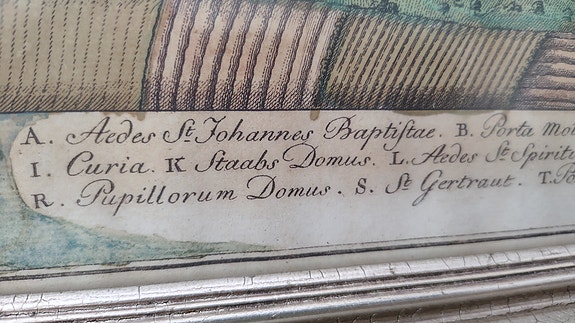 A. Aedes St. Johannes Baptistae. B. Porta
I. Curia. K Staabs Domus. L. Aedes St. Spirit
R. Pupillorum Domus. S. St. Gertraut. T.